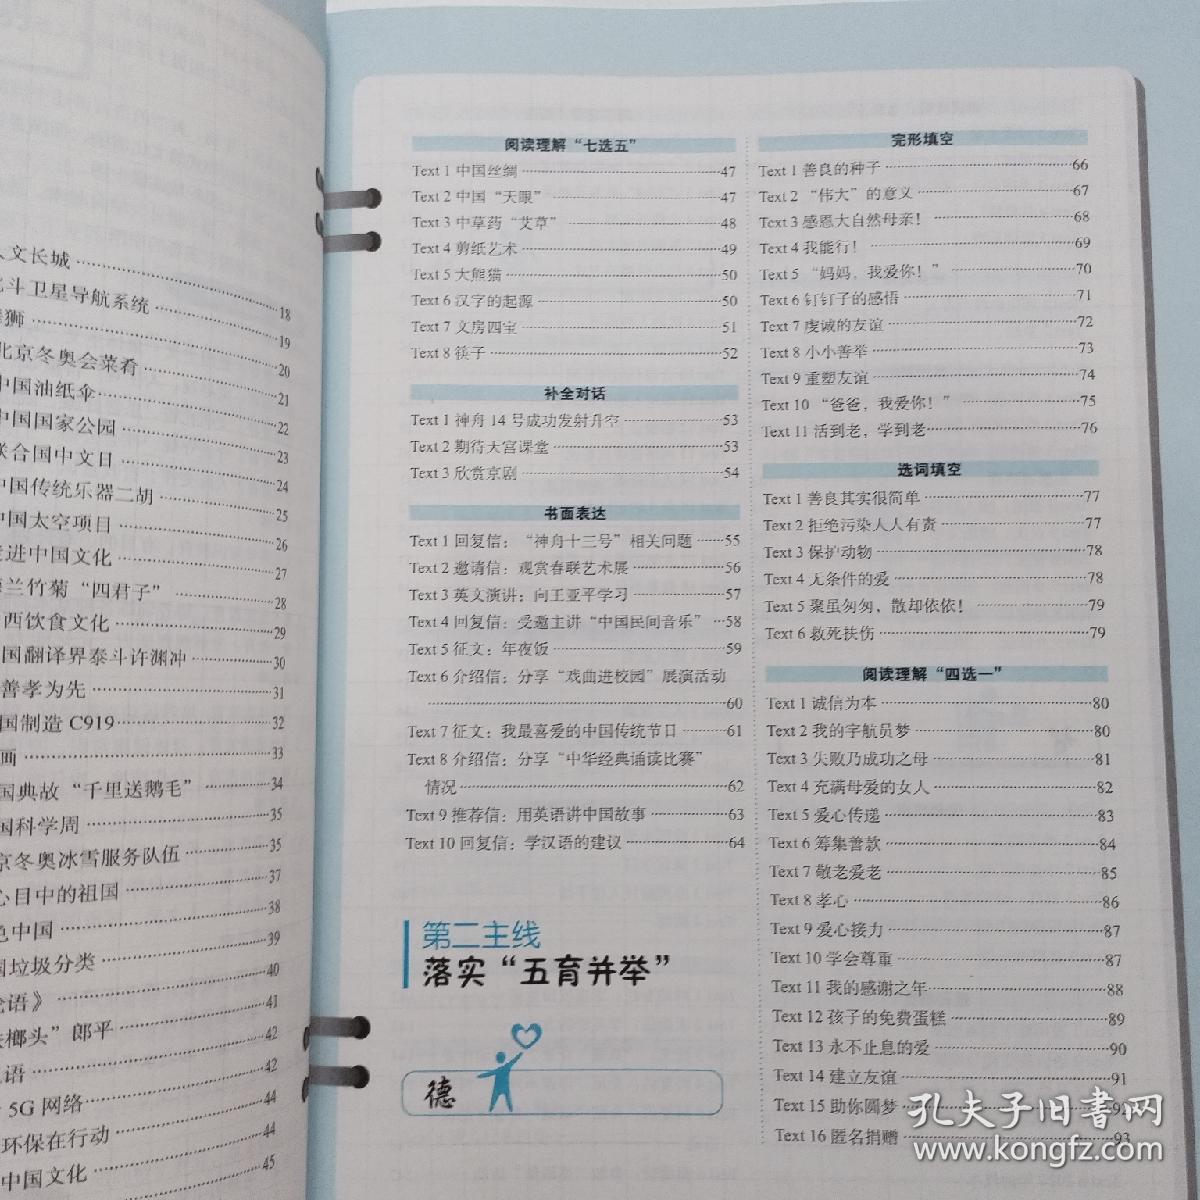 人文长城 18
北斗卫星导航系统 19
狮 20
北京冬奥会菜肴 21
中国油纸伞 22
中国国家公园 23
联合国中文日 24
中国传统乐器二胡 25
中国太空项目 26
走进中国文化 27
梅兰竹菊“四君子” 28
西饮食文化 29
国翻译界泰斗许渊冲 30
善孝为先 31
国制造 C919 32
画 33
国典故“千里送鹅毛” 34
国科学周 35
京冬奥冰雪服务队伍 35
心目中的祖国 37
色中国 38
垃圾分类 39
论语》 40
铁榔头”郎平 41
语 42
5G 网络 42
环保在行动 44
中国文化 44
45
阅读理解“七选五”
Text 1 中国丝绸 47
Text 2 中国“天眼” 47
Text 3 中草药“艾草” 48
Text 4 剪纸艺术 49
Text 5 大熊猫 50
Text 6 汉字的起源 50
Text 7 文房四宝 51
Text 8 筷子 52
补全对话
Text 1 神舟 14 号成功发射升空 53
Text 2 期待天宫课堂 53
Text 3 欣赏京剧 54
书面表达
Text 1 回复信：“神舟十三号”相关问题 55
Text 2 邀请信：观赏春联艺术展 56
Text 3 英文演讲：向王亚平学习 57
Text 4 回复信：受邀主讲“中国民间音乐” 58
Text 5 征文：年夜饭 59
Text 6 介绍信：分享“戏曲进校园”展演活动
60
Text 7 征文：我最喜爱的中国传统节日 61
Text 8 介绍信：分享“中华经典诵读比赛”
情况 62
Text 9 推荐信：用英语讲中国故事 63
Text 10 回复信：学汉语的建议 64
第二主线
落实“五育并举”
德
完形填空
Text 1 善良的种子 66
Text 2 “伟大”的意义 67
Text 3 感恩大自然母亲！ 68
Text 4 我能行！ 69
Text 5 “妈妈，我爱你！” 70
Text 6 钉钉子的感悟 71
Text 7 虔诚的友谊 72
Text 8 小小善举 73
Text 9 重塑友谊 74
Text 10 “爸爸，我爱你！” 75
Text 11 活到老，学到老 76
选词填空
Text 1 善良其实很简单 77
Text 2 拒绝污染人人有责 77
Text 3 保护动物 78
Text 4 无条件的爱 78
Text 5 聚虽匆匆，散却依依！ 79
Text 6 救死扶伤 79
阅读理解“四选一”
Text 1 诚信为本 80
Text 2 我的宇航员梦 80
Text 3 失败乃成功之母 81
Text 4 充满母爱的女人 82
Text 5 爱心传递 83
Text 6 筹集善款 84
Text 7 敬老爱老 85
Text 8 孝心 86
Text 9 爱心接力 87
Text 10 学会尊重 87
Text 11 我的感谢之年 88
Text 12 孩子的免费蛋糕 89
Text 13 永不止息的爱 90
Text 14 建立友谊 91
Text 15 助你圆梦 92
Text 16 匿名捐赠 93
孔夫子旧书网
www.kongfz.com